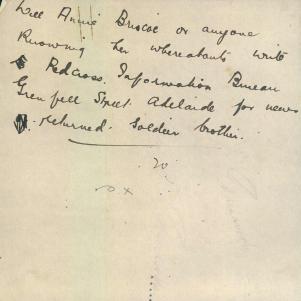 Will Annie Briscoe or anyone
Knowing her whereabouts write
Redcross. Information Bureau
Grenfell Street. Adelaide for news
returned. Soldier brother.
20
o x